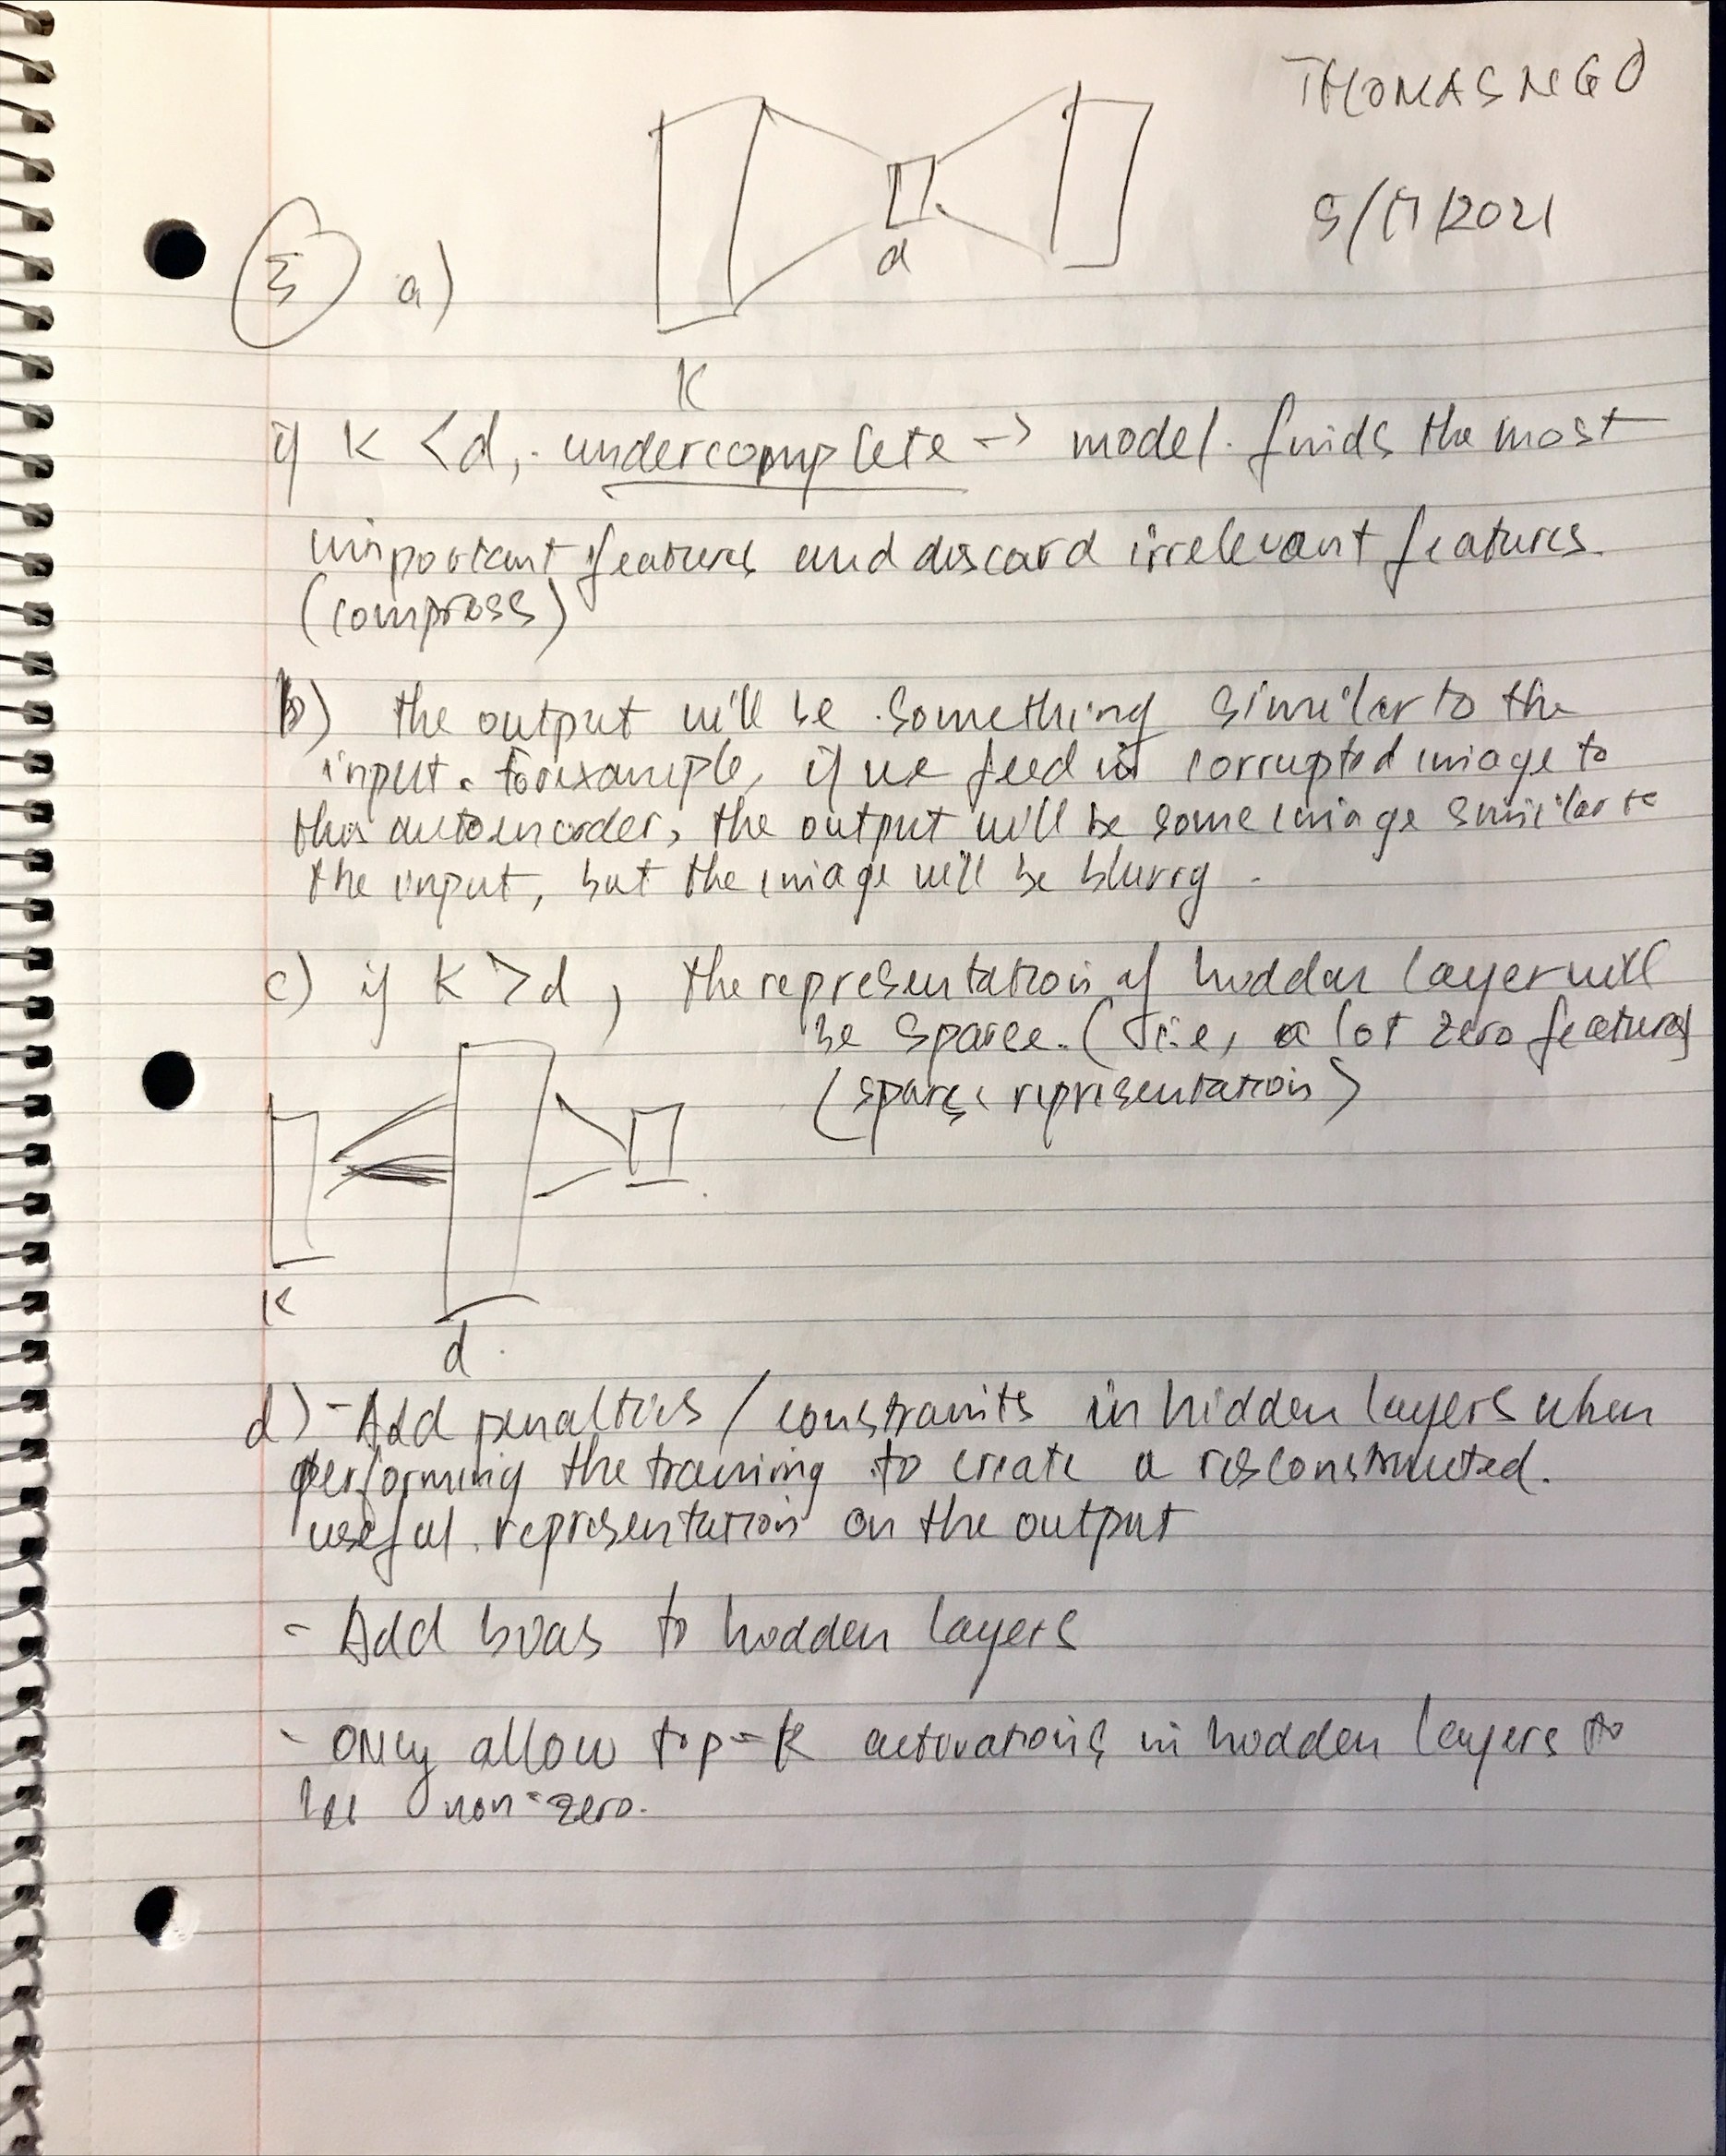 THOMAS NGO
5/17/2021
5 a)
d
K
if K < d, undercomplete -> model finds the most
important features and discard irrelevant features.
(compress)
b) the output will be something similar to the
input. for example, if we feed in corrupted image to
this autoencoder, the output will be some image similar to
the input, but the image will be blurry.
c) if K > d, the representation of hidden layer will
be sparce. (i.e, a lot zero features)
(sparse representation)
K
d
d) - Add penalties / constraints in hidden layers when
performing the training to create a resconstructed.
useful representation on the output
- Add bias to hidden layers
- only allow top-k activations in hidden layers to
be non-zero.